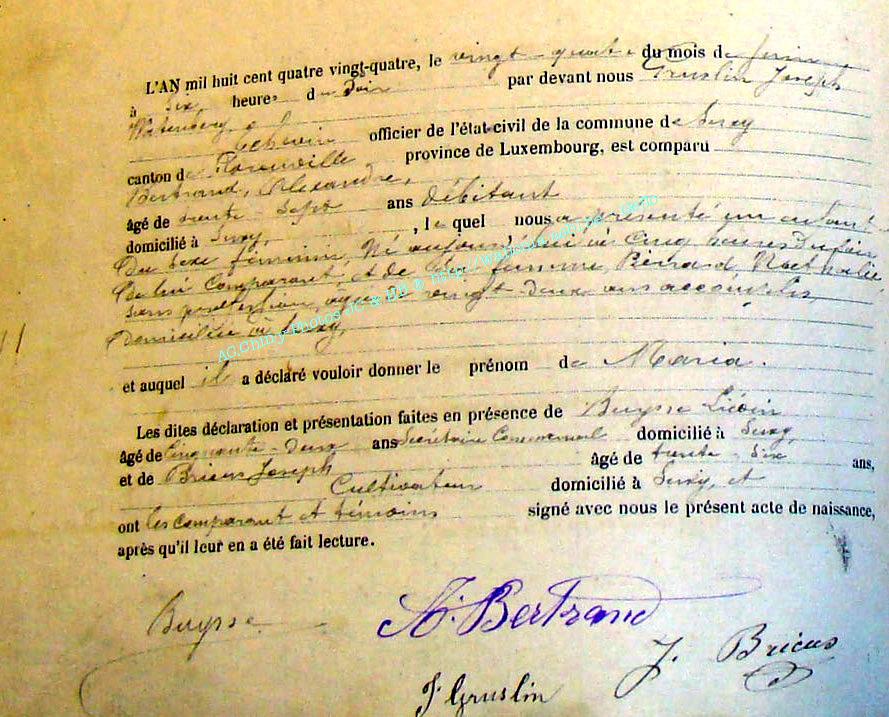 L'AN mil huit cent quatre vingt-quatre, le vingt-quatre du mois de Juin
à Six heures du Soir par devant nous Gruslin Joseph
Echevin officier de l'état-civil de la commune de Suxy
canton de Florenville province de Luxembourg, est comparu
Bertrand, Alexandre,
âgé de trente-Sept ans débitant
domicilié à Suxy, , lequel nous a présenté un enfant
Du Sexe féminin, Né aujourd'hui à Cinq heures Du Soir,
De lui Comparant, et de Sa femme, Bernard, Nathalie,
Sans profession, agée de vingt-Deux ans accomplis,
Domiciliée à Suxy,
et auquel il a déclaré vouloir donner le prénom de Maria.
Les dites déclaration et présentation faites en présence de Buysse Liévin
âgé de Cinquante-Deux ans Secrétaire Communal domicilié à Suxy,
et de Bricus Joseph âgé de trente-Six ans,
Cultivateur domicilié à Suxy, et
ont les comparant et témoins signé avec nous le présent acte de naissance,
après qu'il leur en a été fait lecture.
Buysse
A. Bertrand
J. Bricus
J Gruslin